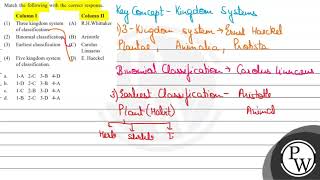 Match the following with the correct response.
Column I Column II
(1) Three kingdom system of classification. (A) R.H.Whittaker
(2) Binomial classification (B) Aristotle
(3) Earliest classification (C) Carolus Linnaeus
(4) Five kingdom system of classification. (D) E. Haeckel
a. 1-A 2-C 3-B 4-D
b. 1-D 2-C 3-B 4-A
c. 1-C 2-D 3-B 4-A
d. 1-B 2-C 3-D 4-A
Key Concept - Kingdom Systems
1) 3-Kingdom system → Ernst Haeckel
Plantae, Animalia, Protista
Binomial Classification → Carolus Linnaeus.
3) Earliest Classification - Aristotle
Plant (Habit) Animal
Herb shrubs T
PW